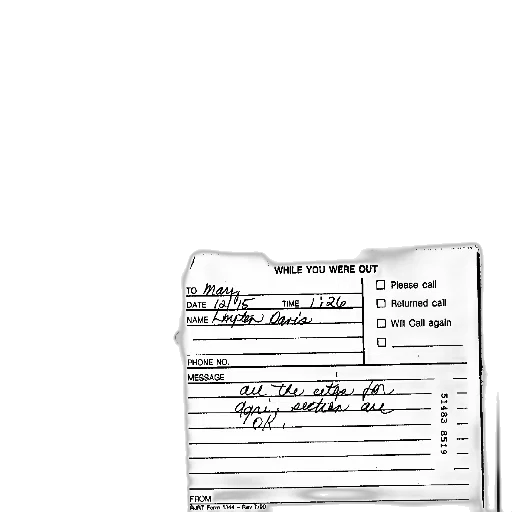 WHILE YOU WERE OUT
TO Mary
DATE 12/15 TIME 1:26
NAME Layton Davis
Please call
Returned call
Will Call again
PHONE NO.
MESSAGE
all the cites for
agri. section are
OK.
51483 8519
FROM
RJRT Form 1344 - Rev 7/90